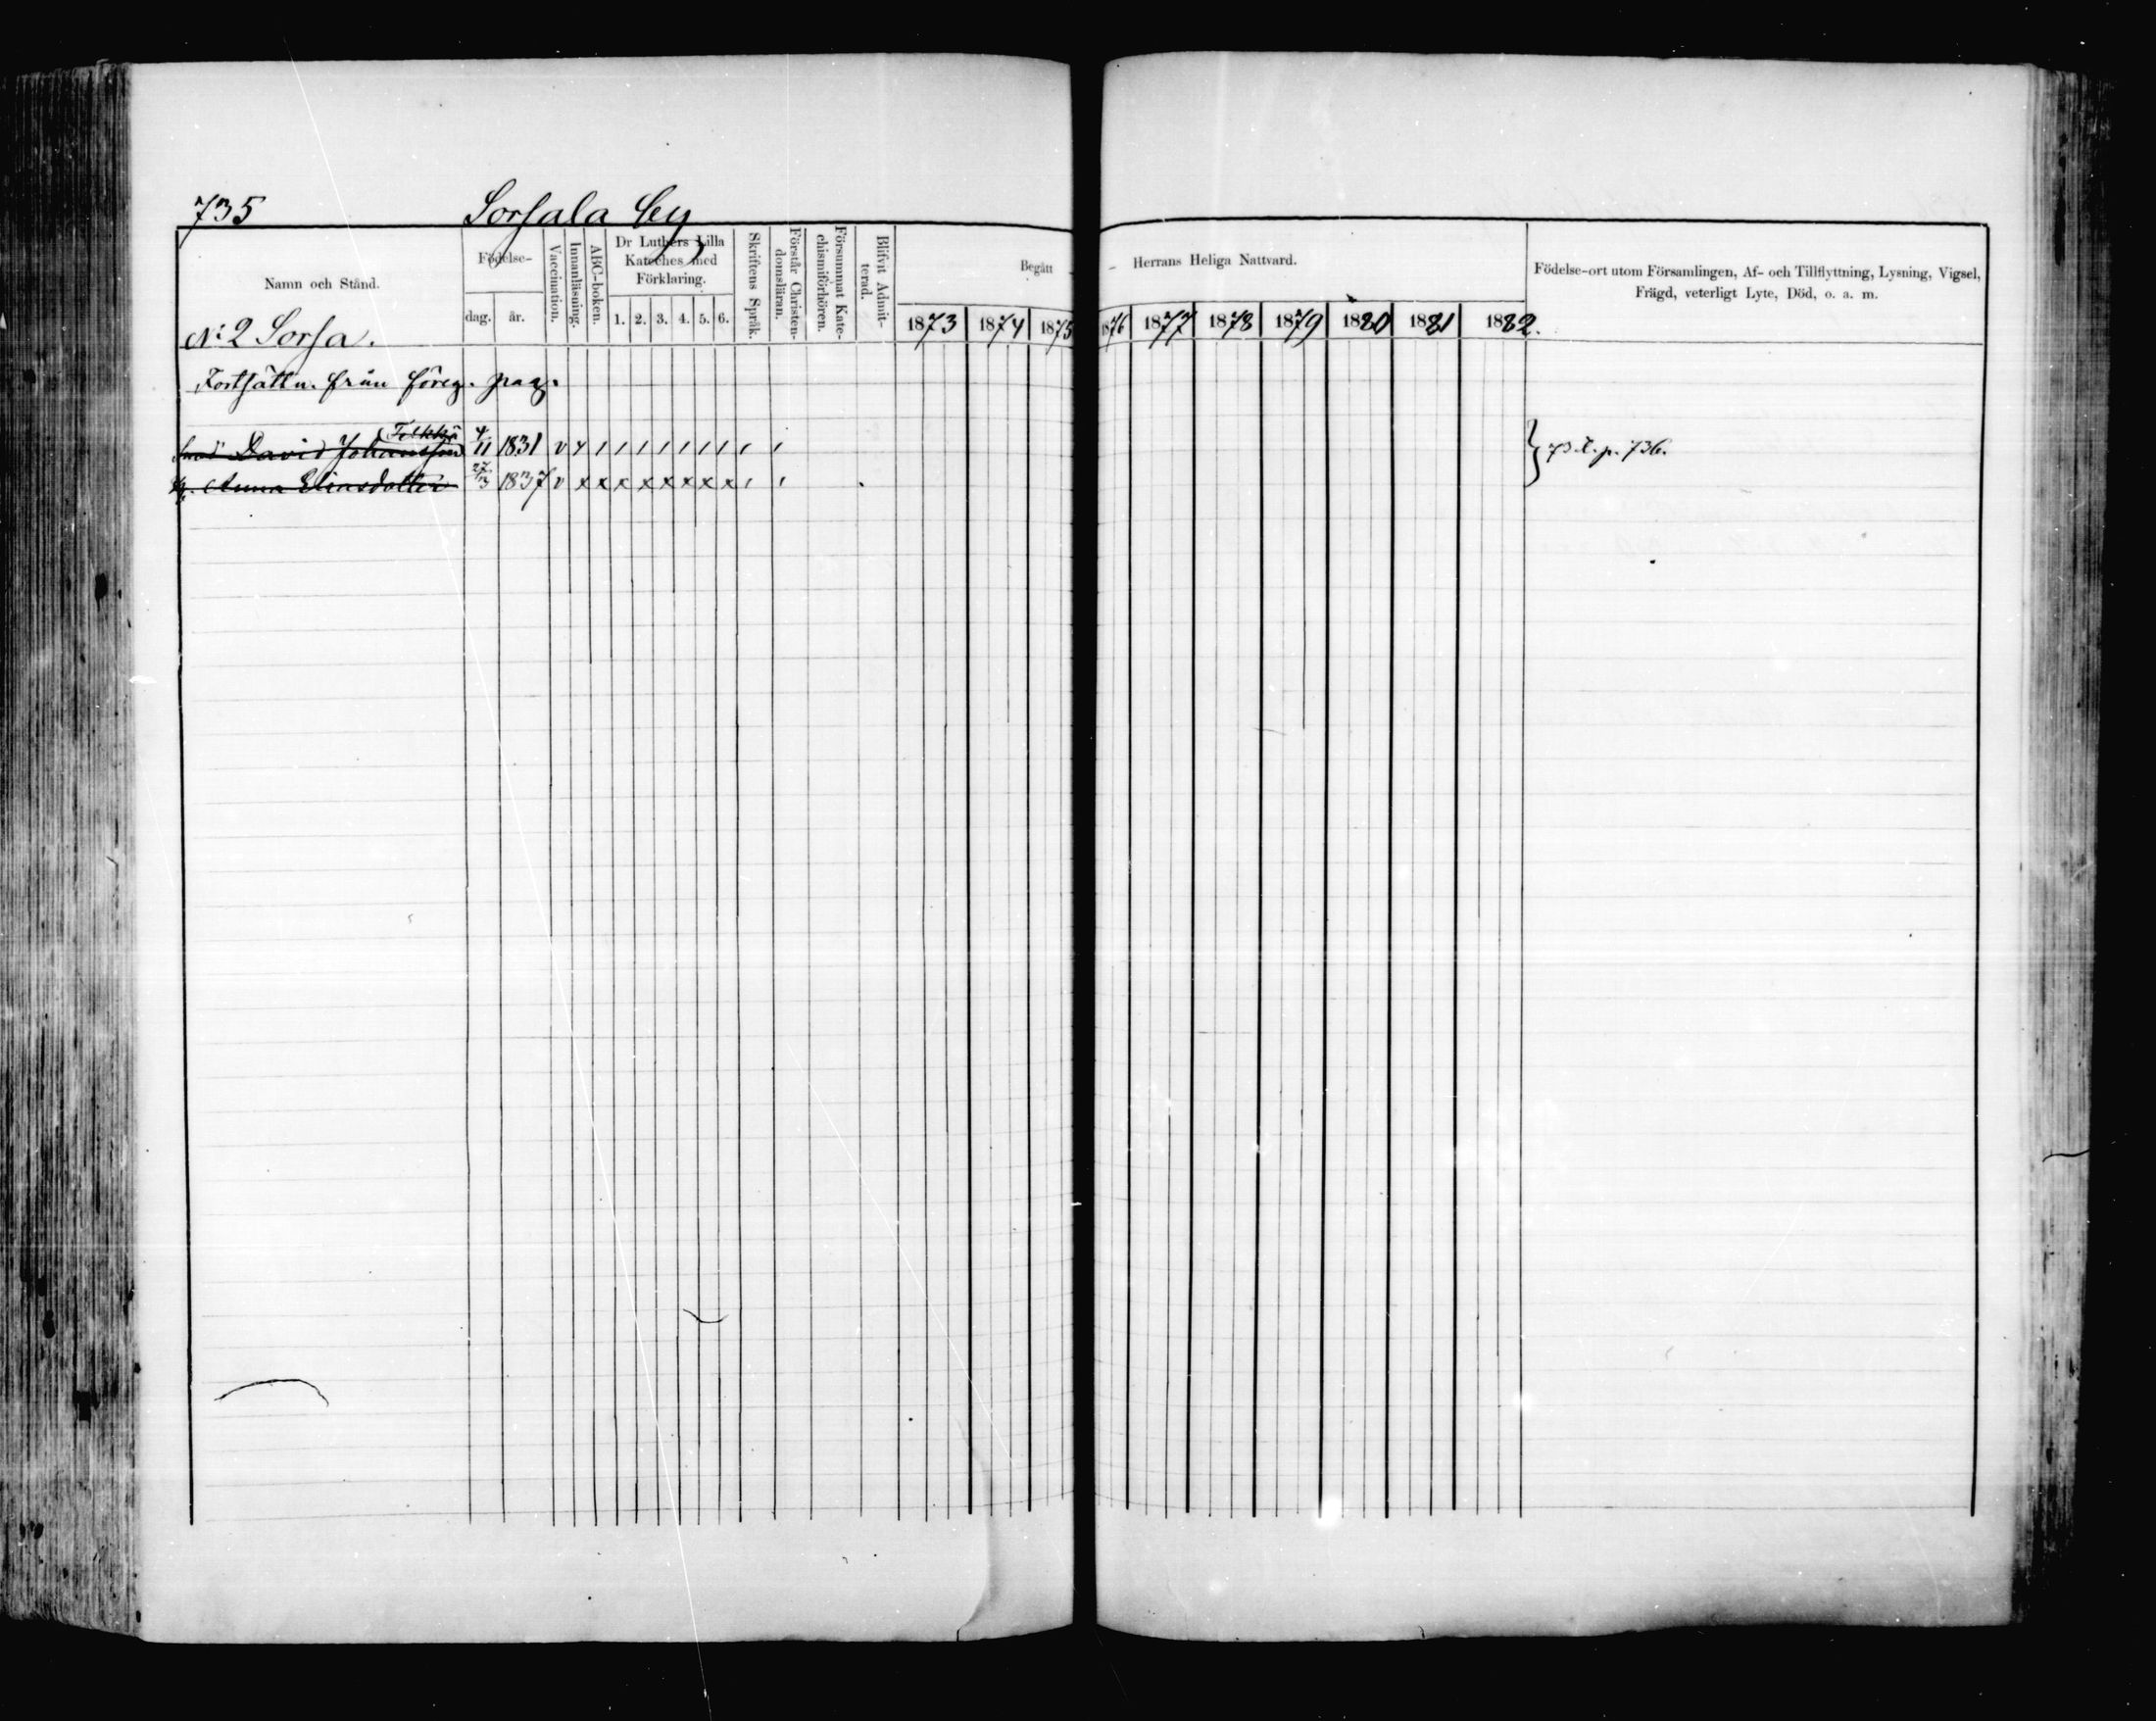 735 Sorsala by
Namn och Stånd.
Födelse-
dag. år.
Vaccination.
Innanläsning.
ABC-boken.
Dr Luthers Lilla
Kateches med
Förklaring.
1. 2. 3. 4. 5. 6.
Skriftens Språk.
Förstår Christen-
domsläran.
Försummat Kate-
chismiförhören.
Blifvit Admit-
terad.
Begått Herrans Heliga Nattvard.
1873 1874 1875 1876 1877 1878 1879 1880 1881 1882.
Födelse-ort utom Församlingen, Af- och Tillflyttning, Lysning, Vigsel,
Frägd, veterligt Lyte, Död, o. a. m.
N:2 Sorsa.
Fortsättn. från föreg. pag.
David Johansson 4/11 1831 v
Anna Eliasdotter 27/3 1837 v x x x x x x x x
p. 736.